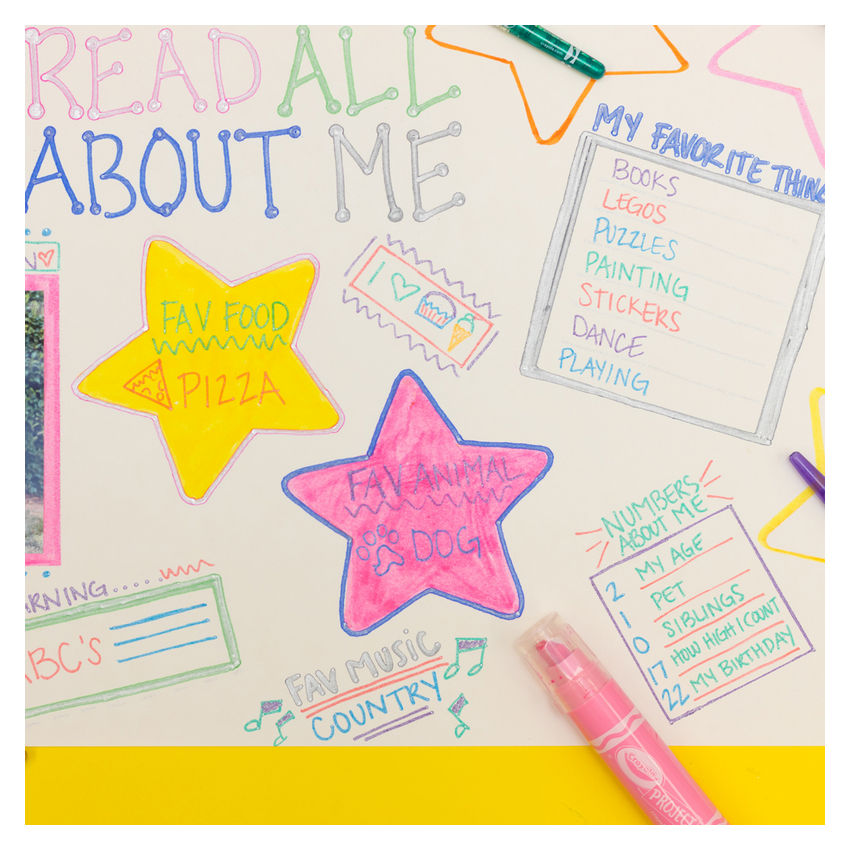 READ ALL
ABOUT ME
MY FAVORITE THING
BOOKS
LEGOS
PUZZLES
PAINTING
STICKERS
DANCE
PLAYING
FAV FOOD
PIZZA
I
FAV ANIMAL
DOG
NUMBERS
ABOUT ME
2 MY AGE
1 PET
0 SIBLINGS
17 HOW HIGH I COUNT
22 MY BIRTHDAY
ARNING.....
ABC'S
FAV MUSIC
COUNTRY
Crayola
PROJECT